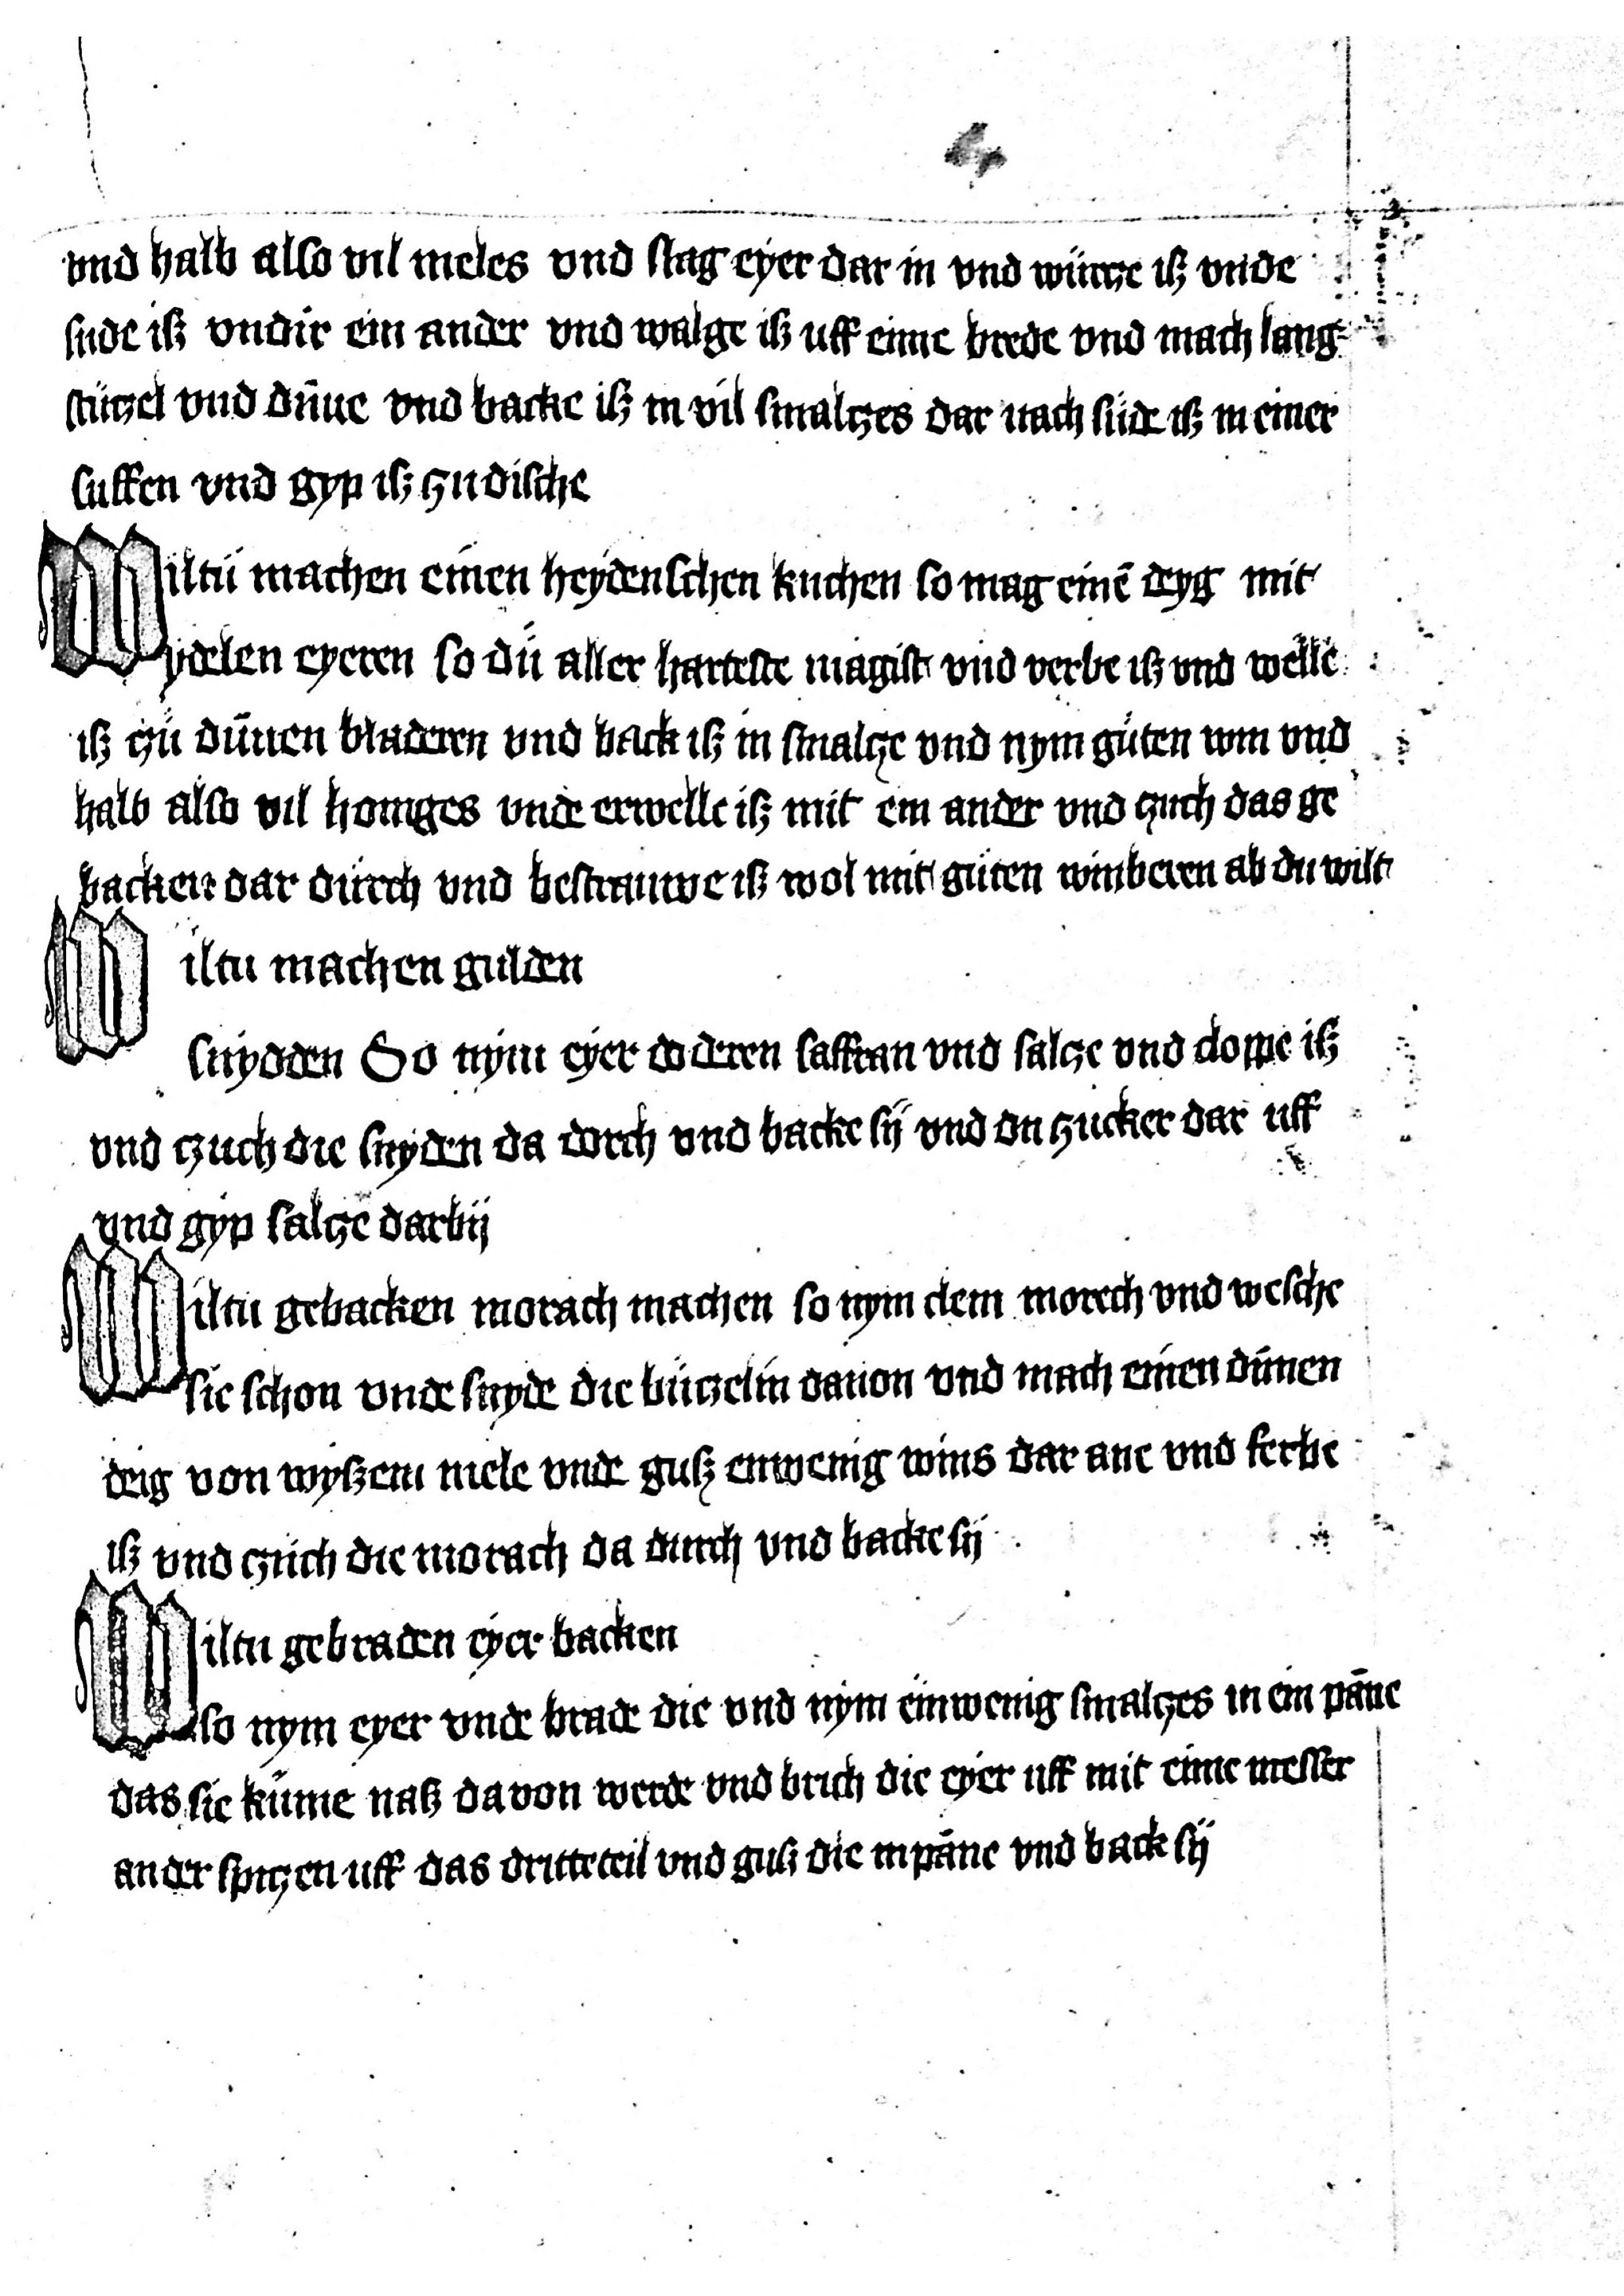 vnd halb also vil meles vnd slag eyer dar in vnd würcze iß vnde
snde iß vndir ein ander vnd walge iß uff eime brede vnd mach lang
stüczel vnd dūne vnd backe iß in vil smalczes dar nach süde iß in einer
suffen vnd gyp iß zu dische
Wiltü machen einen heydenschen kuchen so mag einē deyg mit
ydelen eyeren so dü aller harteste magist vnd verbe iß vnd welle
iß czü dūnen bladeren vnd back iß in smalcze vnd nym güten win vnd
halb also vil honiges vnde erwelle iß mit ein ander vnd czuch das ge
backen dar durch vnd bestrauwe iß wol mit güten winberen ab du wilt
Wiltu machen gulden
snydden So nym eyer doderen saffran vnd salcze vnd cloppe iß
vnd czuch die snyden da dorch vnd backe sÿ vnd du zucker dar uff
vnd gyp salcze darbij
Wiltu gebacken morach machen so nym clein morech vnd wesche
sie schon vnde snyde die büczelin dauon vnd mach einen dünnen
deig von wyßem mele vnde guß einwenig wins dar ane vnd ferbe
iß vnd czüch die morach da durch vnd backe sij
Wiltu gebraden eyer backen
so nym eyer vnde brade die vnd nym einwenig smalczes in ein pāne
das sie küme naß da von werde vnd brich die eyer uff mit eime messer
an der spiczen uff das dritteteil vnd guß die in pāne vnd back sÿ